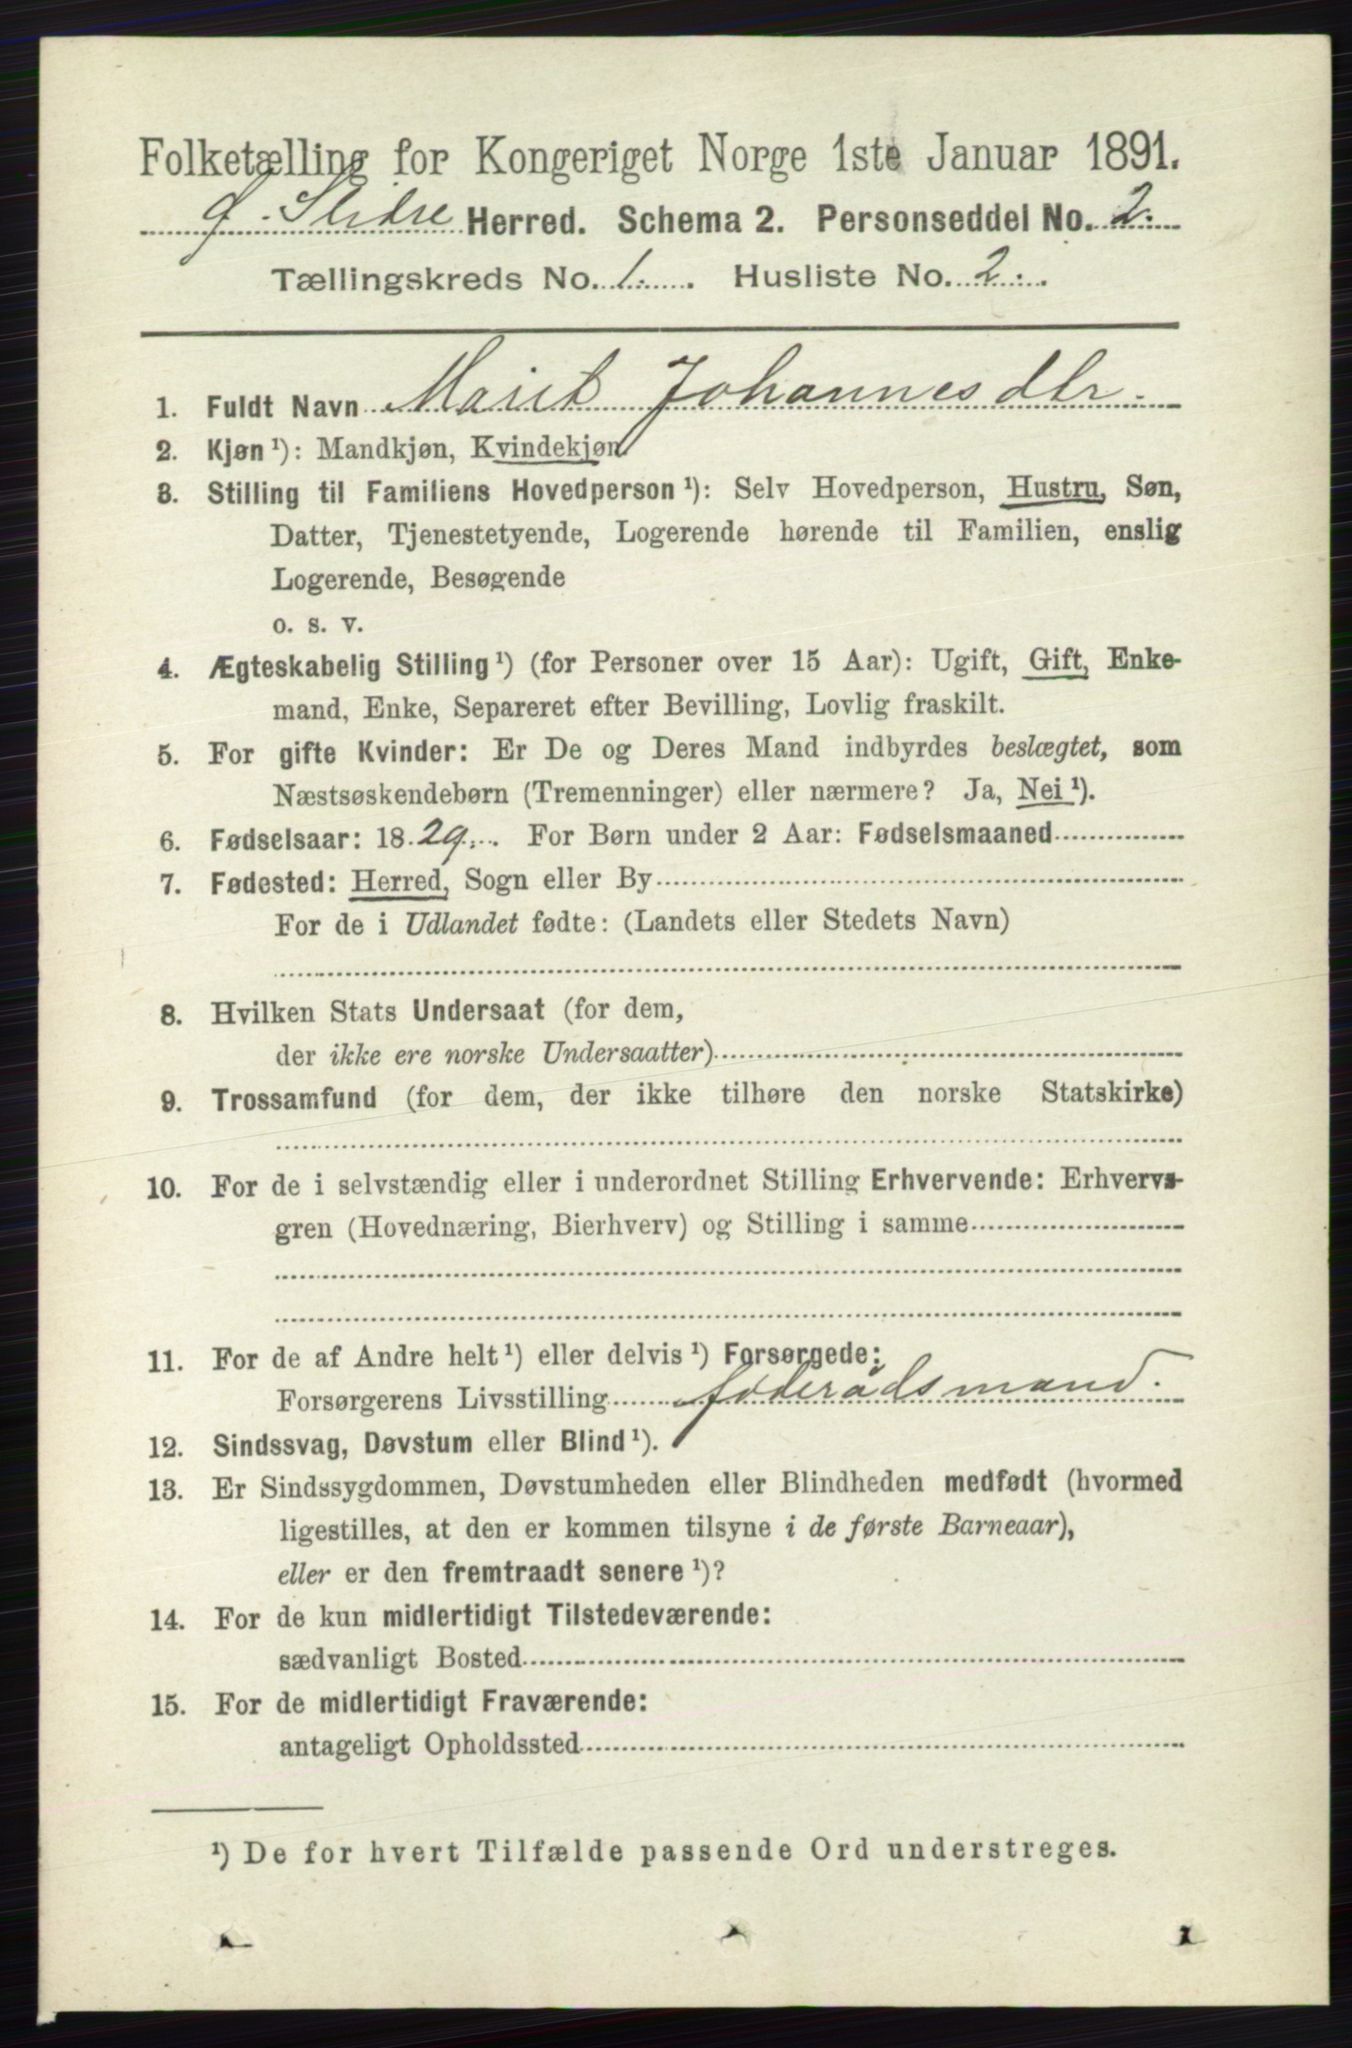 Folketælling for Kongeriget Norge 1ste Januar 1891.
Ø. Slidre Herred. Schema 2. Personseddel No. 2.
Tællingskreds No. 1. Husliste No. 2.
1. Fuldt Navn Marit Johannesdtr.
2. Kjøn¹): Mandkjøn, Kvindekjøn
3. Stilling til Familiens Hovedperson¹): Selv Hovedperson, Hustru, Søn,
Datter, Tjenestetyende, Logerende hørende til Familien, enslig
Logerende, Besøgende
o. s. v.
4. Ægteskabelig Stilling¹) (for Personer over 15 Aar): Ugift, Gift, Enke-
mand, Enke, Separeret efter Bevilling, Lovlig fraskilt.
5. For gifte Kvinder: Er De og Deres Mand indbyrdes beslægtet, som
Næstsøskendebørn (Tremenninger) eller nærmere? Ja, Nei¹).
6. Fødselsaar: 1829. For Børn under 2 Aar: Fødselsmaaned
7. Fødested: Herred, Sogn eller By
For de i Udlandet fødte: (Landets eller Stedets Navn)
8. Hvilken Stats Undersaat (for dem,
der ikke ere norske Undersaatter)
9. Trossamfund (for dem, der ikke tilhøre den norske Statskirke)
10. For de i selvstændig eller i underordnet Stilling Erhvervende: Erhvervs-
gren (Hovednæring, Bierhverv) og Stilling i samme
11. For de af Andre helt¹) eller delvis¹) Forsørgede:
Forsørgerens Livsstilling føderådsmand.
12. Sindssvag, Døvstum eller Blind¹).
13. Er Sindssygdommen, Døvstumheden eller Blindheden medfødt (hvormed
ligestilles, at den er kommen tilsyne i de første Barneaar),
eller er den fremtraadt senere¹)?
14. For de kun midlertidigt Tilstedeværende:
sædvanligt Bosted
15. For de midlertidigt Fraværende:
antageligt Opholdssted
¹) De for hvert Tilfælde passende Ord understreges.